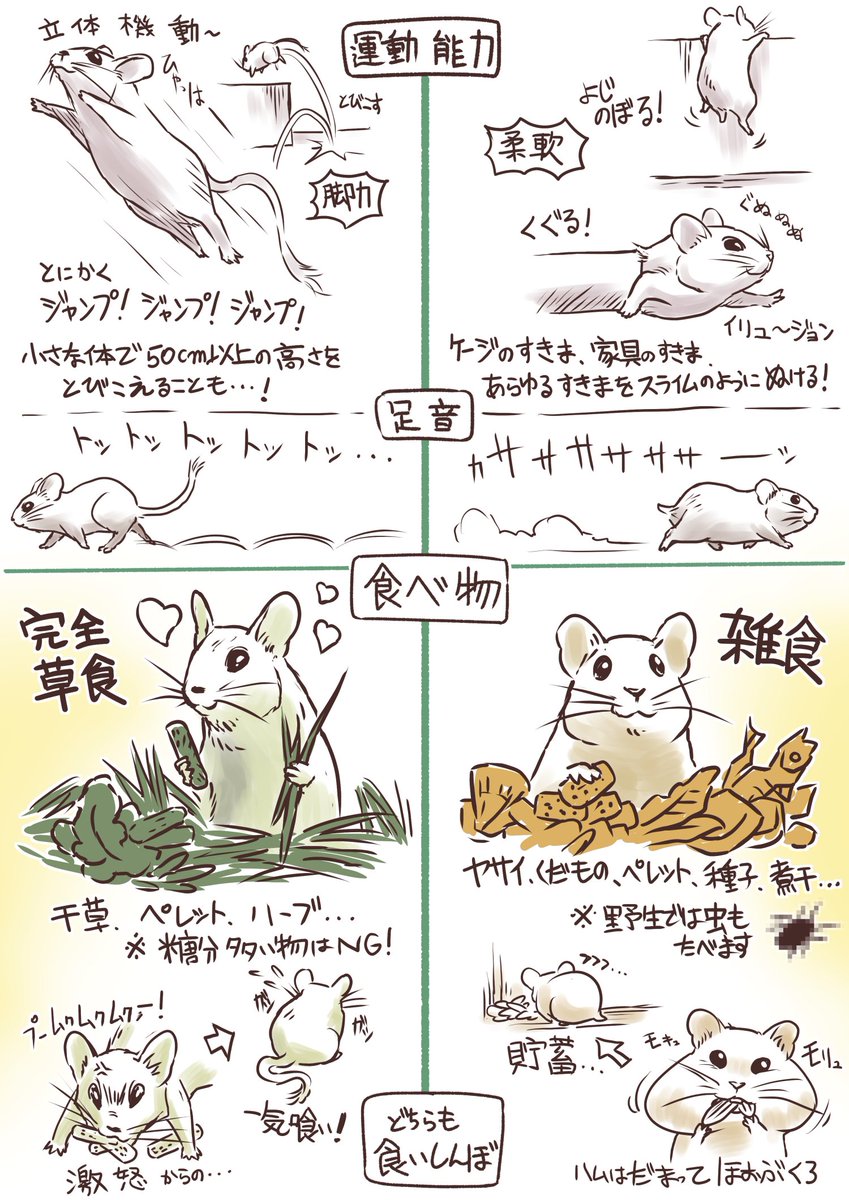 運動能力
立体機動～
ひゃっは
とびこす
脚力
とにかく
ジャンプ！ジャンプ！ジャンプ！
小さな体で50cm以上の高さを
とびこえることも…！
よじ
のぼる！
柔軟
くぐる！
ぐぬぬぬ
イリュ～ジョン
ケージのすきま、家具のすきま
あらゆるすきまをスライムのようにぬける！
足音
トットットットットッ...
カサササササササーーッ
食べ物
完全
草食
干草、ペレット、ハーブ…
※糖分多い物はNG！
プームクムクムクー！
激怒からの…
ガッ
ガッ
一気喰い！
雑食
ヤサイ、くだもの、ペレット、種子、煮干…
※野生では虫も
たべます
貯蓄…
モキュ
モリュ
ハムはだまってほおぶくろ
どちらも
食いしんぼ